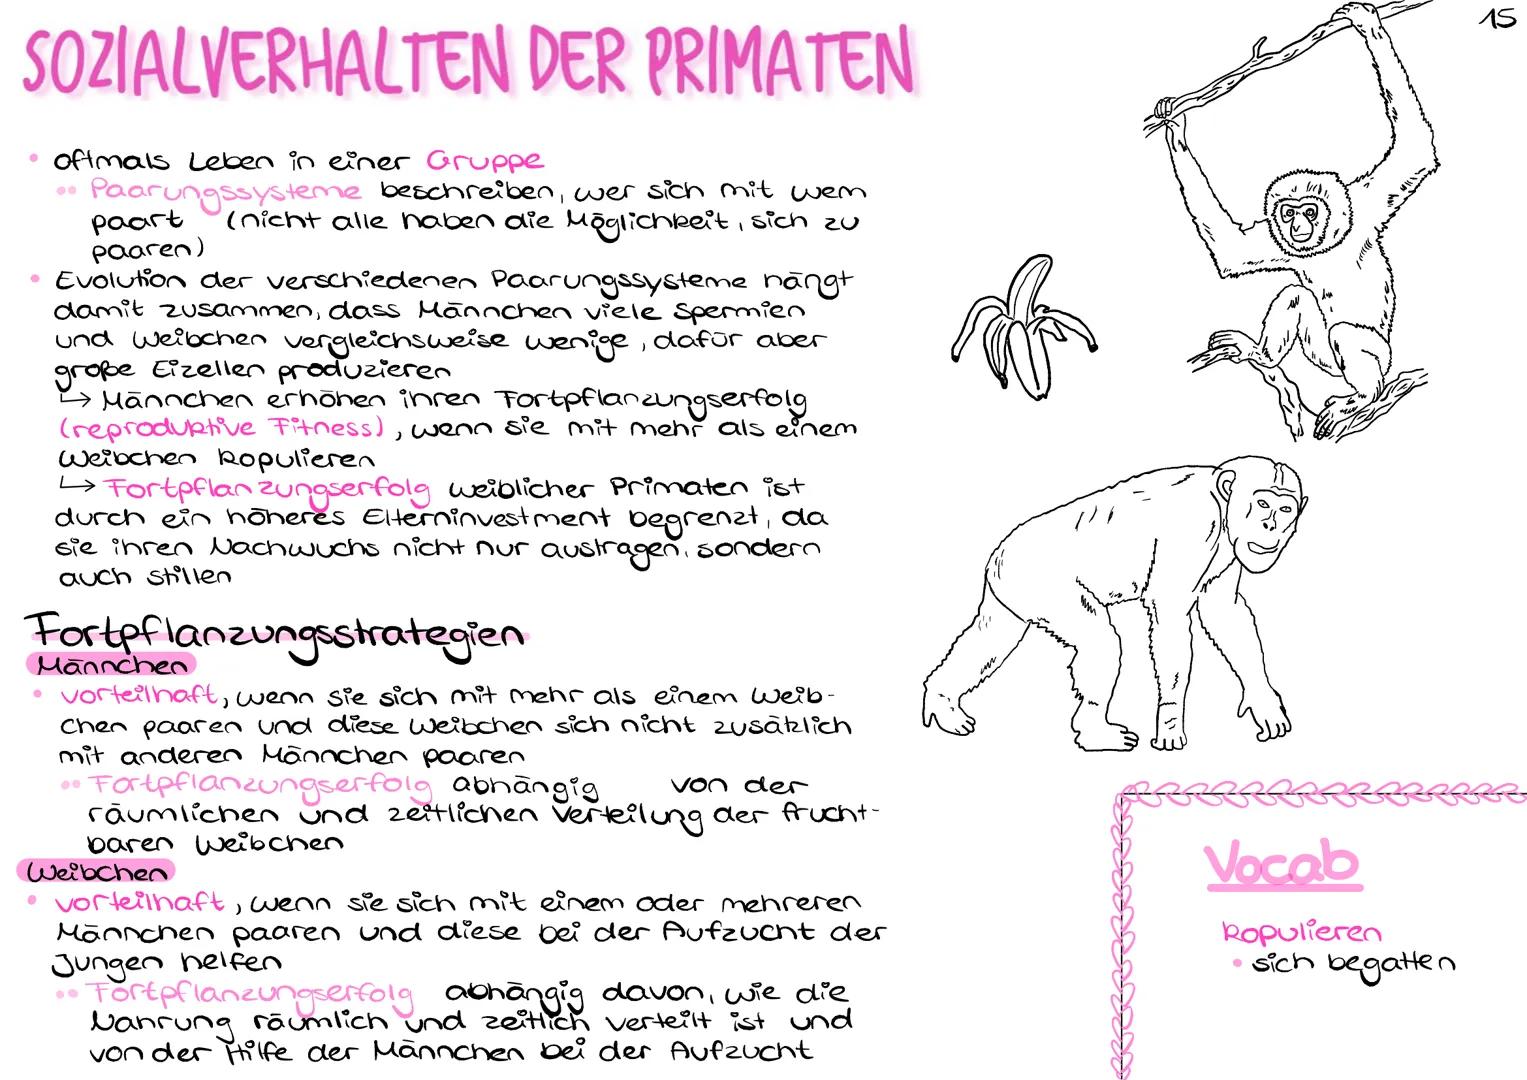 15
SOZIALVERHALTEN DER PRIMATEN
• oftmals Leben in einer Gruppe
•• Paarungssysteme beschreiben, wer sich mit wem
paart (nicht alle haben die Möglichkeit, sich zu
paaren)
• Evolution der verschiedenen Paarungssysteme hängt
damit zusammen, dass Männchen viele Spermien
und Weibchen vergleichsweise wenige, dafür aber
große Eizellen produzieren
↳ Männchen erhöhen ihren Fortpflanzungserfolg
(reproduktive Fitness), wenn sie mit mehr als einem
Weibchen kopulieren
↳ Fortpflanzungserfolg weiblicher Primaten ist
durch ein höheres Elterninvestment begrenzt, da
sie ihren Nachwuchs nicht nur austragen, sondern
auch stillen
Fortpflanzungsstrategien
Männchen
• vorteilhaft, wenn sie sich mit mehr als einem Weib-
chen paaren und diese Weibchen sich nicht zusätzlich
mit anderen Männchen paaren
•• Fortpflanzungserfolg abhängig von der
räumlichen und zeitlichen Verteilung der frucht-
baren Weibchen
Weibchen
• vorteilhaft, wenn sie sich mit einem oder mehreren
Männchen paaren und diese bei der Aufzucht der
Jungen helfen
•• Fortpflanzungserfolg abhängig davon, wie die
Nahrung räumlich und zeitlich verteilt ist und
von der Hilfe der Männchen bei der Aufzucht
Vocab
kopulieren
• sich begatten